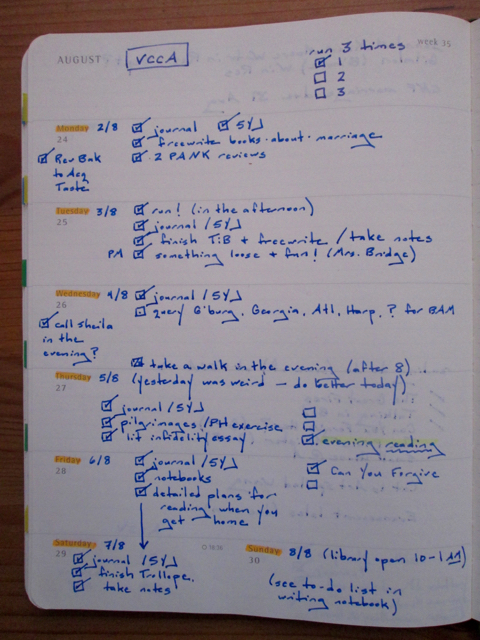 AUGUST
VCCA
week 35
run 3 times
1
2
3
Monday 2/8
24
journal 5YJ
freewrite books about marriage
2 PANK reviews
Rev Bak
to Acq
Taste
Tuesday 3/8
25
run! (in the afternoon)
journal / 5YJ
finish TiB + freewrite / take notes
PM something loose + fun! (Mrs. Bridge)
Wednesday 4/8
26
journal / 5YJ
query G'burg, Georgia, Atl, Harp, ? for BAM
call Sheila
in the
evening?
take a walk in the evening (after 8)
Thursday 5/8
27
(yesterday was weird — do better today)
journal / 5YJ
pilgrimages / PH exercise
lit infidelity essay
evening reading
Friday 6/8
28
journal / 5YJ
notebooks
detailed plans for
reading when you
get home
Can You Forgive
Saturday 7/8
29
journal / 5YJ
finish Trollope,
take notes
Sunday 8/8 (library open 10-1 AM)
30
(see to-do list in
writing notebook)